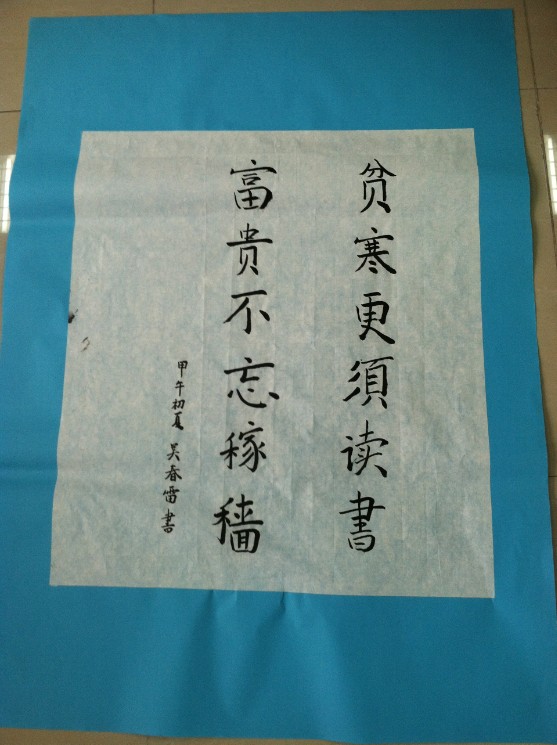 贫寒更须读書
富贵不忘稼穑
甲午初夏 吴春雷書